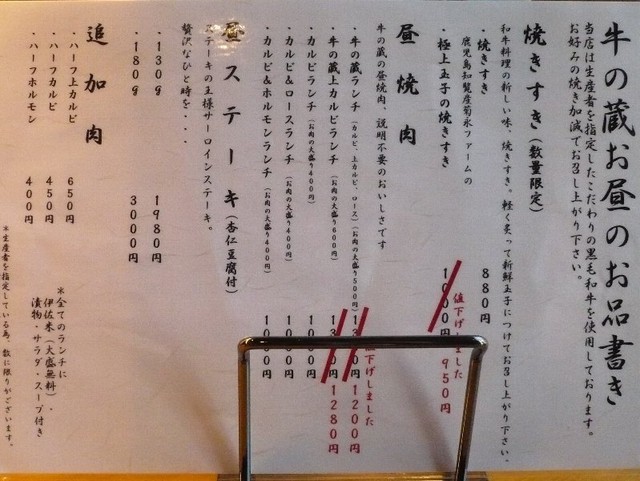 牛の蔵お昼のお品書き
当店は生産者を指定したこだわりの黒毛和牛を使用しております。
お好みの焼き加減でお召し上がり下さい。
焼きすき(数量限定)
和牛料理の新しい味、焼きすき。軽く炙って新鮮玉子につけてお召し上がり下さい。
・焼きすき 880円
鹿児島知覧産菊永ファームの
・極上玉子の焼きすき 1000円 950円
値下げしました
昼焼肉
牛の蔵の昼焼肉、説明不要のおいしさです
・牛の蔵ランチ(カルビ、上カルビ、ロース)(お肉の大盛り500円) 1200円
値下げしました
・牛の蔵上カルビランチ(お肉の大盛り600円) 1280円
・カルビランチ(お肉の大盛り400円)
・カルビ&ロースランチ(お肉の大盛り400円)
・カルビ&ホルモンランチ(お肉の大盛り400円)
昼ステーキ(杏仁豆腐付)
ステーキの王様サーロインステーキ。
贅沢なひと時を・・・
・130g 1980円
・180g 3000円
追加肉
・ハーフ上カルビ 650円
・ハーフカルビ 450円
・ハーフホルモン 400円
*全てのランチに
伊佐米(大盛無料)・
漬物・サラダ・スープ付き
*生産者を指定している為、数に限りがございます。